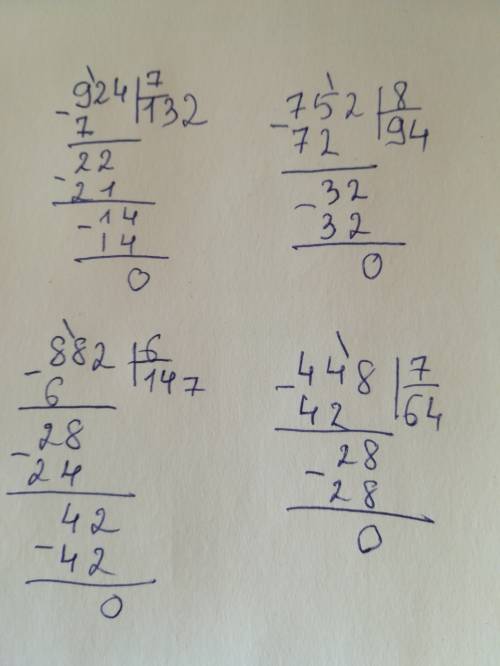 924 7
- 7 132
22
- 21
- 14
14
0
- 752 8
72 94
- 32
32
0
- 882 6
6 147
- 28
24
42
- 42
0
- 448 7
42 64
- 28
28
0